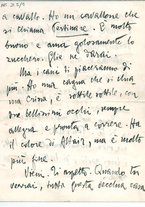 a cavallo. Ho un cavallone che
si chiama Pertinare. È molto
buono e ama golosamente lo
zucchero. Glie ne darai.
Ma i cani ti piaceranno di
più. Ho una cagna che si chia
ma Crissa, è sottile sottile, con
due bellissimi occhi, sempre
allegra e pronta a correre. Ha
il colore di Altair, ma molto
più fine.
Vieni. Ti aspetto. Quando tu
verrai, tutta questa vecchia casa